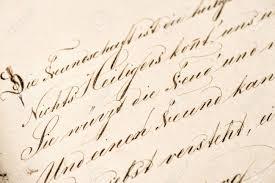 Die Freundschaft ist die heilig
Nichts Heiligers kont, uns
Sie würzt die Freud' und
Und einen Freund kan
selbst versteht,